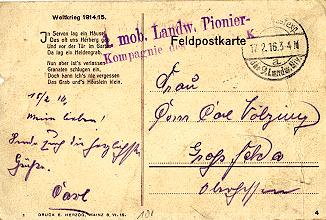 Weltkrieg 1914/15.
In Servon lag ein Häusel,
Das oft uns Herberg
Und vor der Tür im Garten
Da lag ein Heldengrab.
Nun aber ist's verlassen
Granaten schlugen ein,
Doch kann ich's nie vergessen
Das Grab und's Häuslein klein.
1. mob. Landw. Pionier-
Kompagnie
Feldpostkarte
17.2.16.3-4 N
a
der 9. Landw. Div.
Frau
Carl
Groß Felda
Oberhessen
15/2 16.
Meine Lieben!
Sende Euch die herzlichsten
Grüße.
Carl
DRUCK E. HERZOG, MAINZ
4